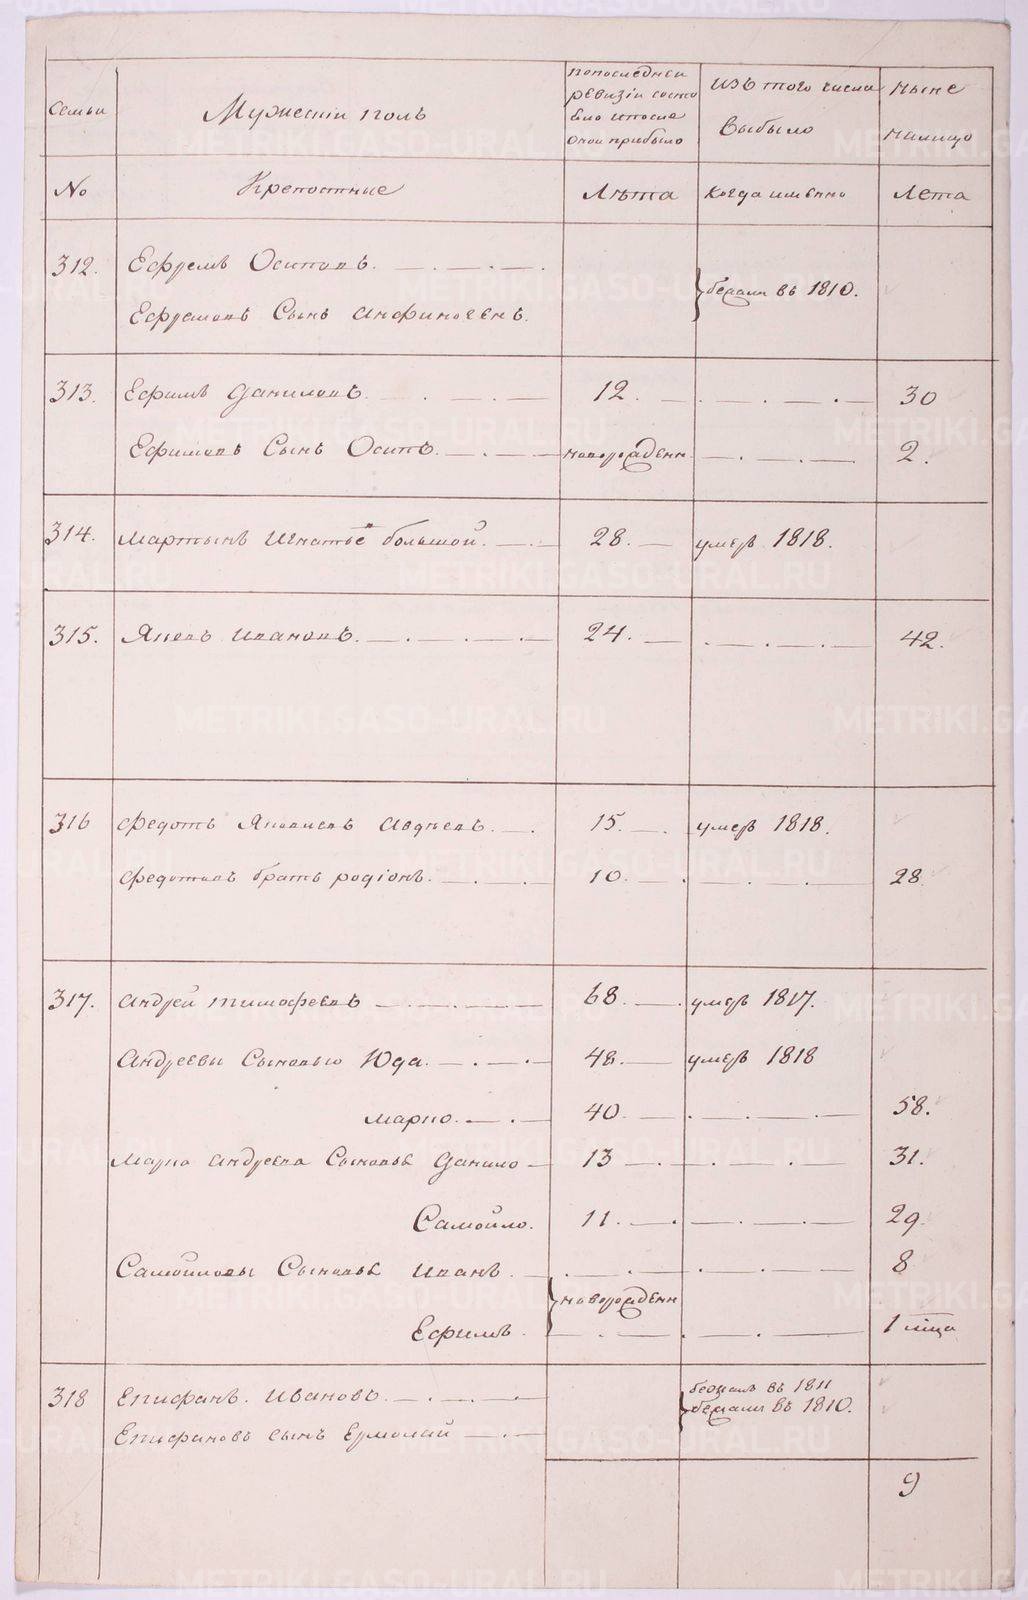 Семьи
Мужескiй полъ
по последней
ревизiи состо
яло и после
оной прибыло
изъ того числа
выбыло
ныне
налицо
No
Крепостные
Лѣта
когда имянно
Лета
312. Ефремъ Осиповъ.
бежали въ 1810.
Ефремовъ Сынъ Анфиногенъ.
313. Ефимъ Даниловъ. 12. 30
Ефимовъ Сынъ Осипъ. новорожден 2.
314. Мартынъ Игнатьевъ большой. 28. умеръ 1818.
315. Яковъ Ивановъ. 24. 42.
316 Федотъ Яковлевъ Авдѣевъ. 15. умеръ 1818.
Федотовъ братъ родiонъ. 10. 28
317. Андрей тимофеевъ 68. умеръ 1817.
Андреевы Сыновью Юда. 48. умеръ 1818
марко. 40. 58.
Марка андреева Сыновья Данило 13 31.
Самойло. 11. 29.
Самойловы Сыновья Иванъ. 8
новорожден
Ефимъ. 1 мца
318 Епифанъ. Ивановъ. бежалъ въ 1811
бежали въ 1810.
Епифановъ сынъ Ермолай
9
METRIKI.GASO-URAL.RU